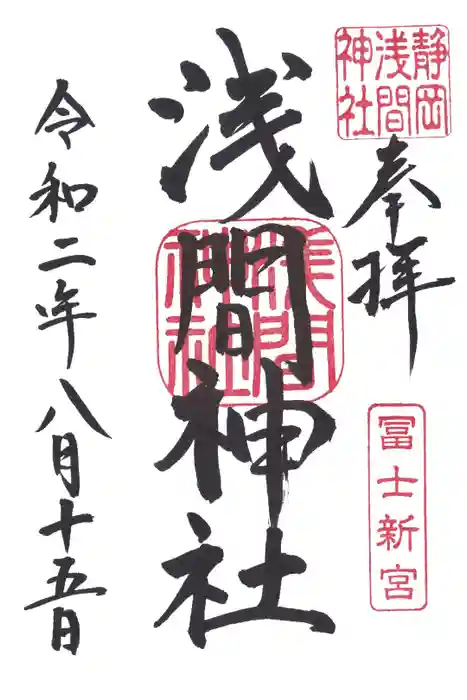 静岡
浅間
神社
奉拝
冨士新宮
浅間神社
浅間
神社
令和二年八月十五日